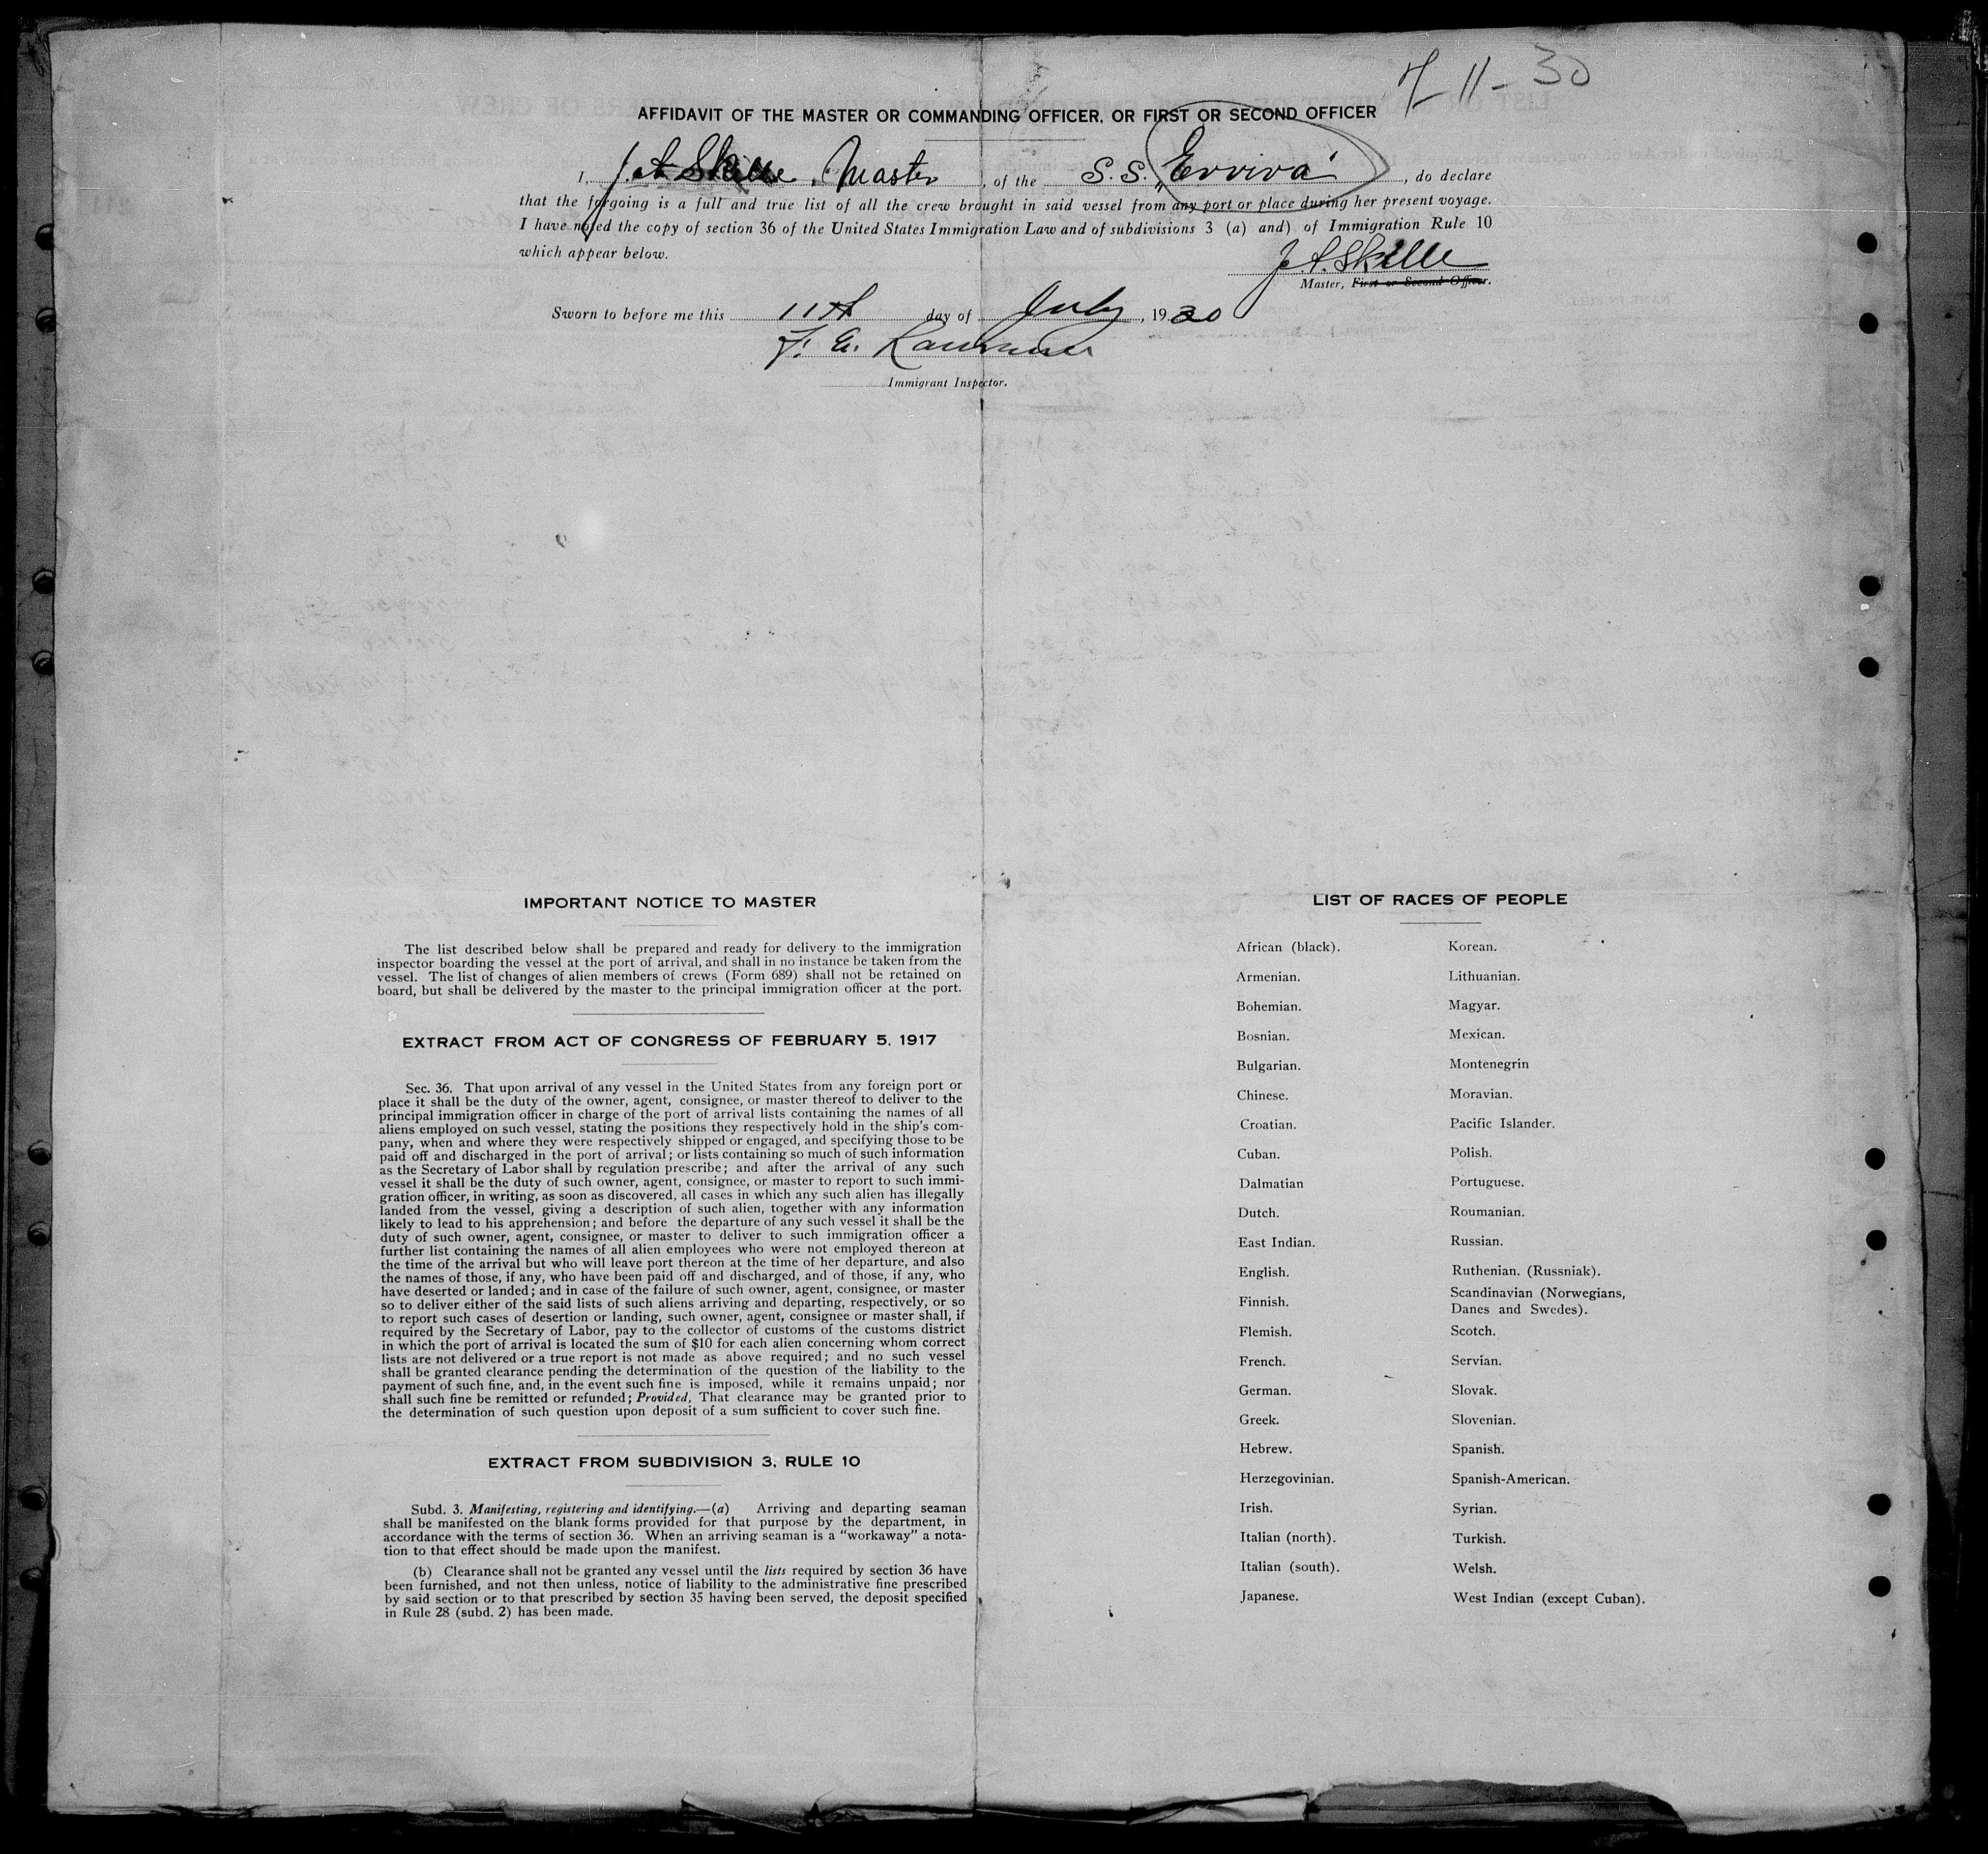 7-11-30
AFFIDAVIT OF THE MASTER OR COMMANDING OFFICER, OR FIRST OR SECOND OFFICER
I, J. A. Skille, Master, of the S.S. "Evviva", do declare
that the forgoing is a full and true list of all the crew brought in said vessel from any port or place during her present voyage.
I have noted the copy of section 36 of the United States Immigration Law and of subdivisions 3 (a) and) of Immigration Rule 10
which appear below.
J. A. Skille
Master, First or Second Officer.
Sworn to before me this 11th day of July, 1930
F. E.
Immigrant Inspector.
IMPORTANT NOTICE TO MASTER
The list described below shall be prepared and ready for delivery to the immigration
inspector boarding the vessel at the port of arrival, and shall in no instance be taken from the
vessel. The list of changes of alien members of crews (Form 689) shall not be retained on
board, but shall be delivered by the master to the principal immigration officer at the port.
EXTRACT FROM ACT OF CONGRESS OF FEBRUARY 5, 1917
Sec. 36. That upon arrival of any vessel in the United States from any foreign port or
place it shall be the duty of the owner, agent, consignee, or master thereof to deliver to the
principal immigration officer in charge of the port of arrival lists containing the names of all
aliens employed on such vessel, stating the positions they respectively hold in the ship's com-
pany, when and where they were respectively shipped or engaged, and specifying those to be
paid off and discharged in the port of arrival; or lists containing so much of such information
as the Secretary of Labor shall by regulation prescribe; and after the arrival of any such
vessel it shall be the duty of such owner, agent, consignee, or master to report to such immi-
gration officer, in writing, as soon as discovered, all cases in which any such alien has illegally
landed from the vessel, giving a description of such alien, together with any information
likely to lead to his apprehension; and before the departure of any such vessel it shall be the
duty of such owner, agent, consignee, or master to deliver to such immigration officer a
further list containing the names of all alien employees who were not employed thereon at
the time of the arrival but who will leave port thereon at the time of her departure, and also
the names of those, if any, who have been paid off and discharged, and of those, if any, who
have deserted or landed; and in case of the failure of such owner, agent, consignee, or master
so to deliver either of the said lists of such aliens arriving and departing, respectively, or so
to report such cases of desertion or landing, such owner, agent, consignee or master shall, if
required by the Secretary of Labor, pay to the collector of customs of the customs district
in which the port of arrival is located the sum of $10 for each alien concerning whom correct
lists are not delivered or a true report is not made as above required; and no such vessel
shall be granted clearance pending the determination of the question of the liability to the
payment of such fine, and, in the event such fine is imposed, while it remains unpaid; nor
shall such fine be remitted or refunded; Provided, That clearance may be granted prior to
the determination of such question upon deposit of a sum sufficient to cover such fine.
EXTRACT FROM SUBDIVISION 3, RULE 10
Subd. 3. Manifesting, registering and identifying.—(a) Arriving and departing seaman
shall be manifested on the blank forms provided for that purpose by the department, in
accordance with the terms of section 36. When an arriving seaman is a "workaway" a nota-
tion to that effect should be made upon the manifest.
(b) Clearance shall not be granted any vessel until the lists required by section 36 have
been furnished, and not then unless, notice of liability to the administrative fine prescribed
by said section or to that prescribed by section 35 having been served, the deposit specified
in Rule 28 (subd. 2) has been made.
LIST OF RACES OF PEOPLE
African (black).
Armenian.
Bohemian.
Bosnian.
Bulgarian.
Chinese.
Croatian.
Cuban.
Dalmatian
Dutch.
East Indian.
English.
Finnish.
Flemish.
French.
German.
Greek.
Hebrew.
Herzegovinian.
Irish.
Italian (north).
Italian (south).
Japanese.
Korean.
Lithuanian.
Magyar.
Mexican.
Montenegrin
Moravian.
Pacific Islander.
Polish.
Portuguese.
Roumanian.
Russian.
Ruthenian. (Russniak).
Scandinavian (Norwegians,
Danes and Swedes).
Scotch.
Servian.
Slovak.
Slovenian.
Spanish.
Spanish-American.
Syrian.
Turkish.
Welsh.
West Indian (except Cuban).